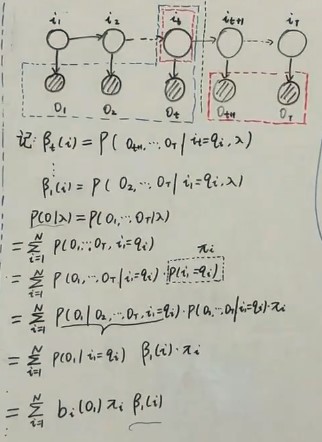 i₁ i₂ iₜ iₜ₊₁ i_T
O₁ O₂ Oₜ Oₜ₊₁ O_T
记: βₜ(i) = P( Oₜ₊₁, ⋯, O_T | iₜ=qᵢ, λ)
⋮
β₁(i) = P( O₂, ⋯, O_T | i₁=qᵢ, λ)
P(O|λ) = P(O₁, ⋯, O_T|λ)
= Σᵢ₌₁ᴺ P(O₁, ⋯, O_T, i₁=qᵢ)
πᵢ
= Σᵢ₌₁ᴺ P(O₁, ⋯, O_T | i₁=qᵢ) · P(i₁=qᵢ)
= Σᵢ₌₁ᴺ P(O₁ | O₂, ⋯, O_T, i₁=qᵢ) · P(O₂, ⋯, O_T | i₁=qᵢ) · πᵢ
= Σᵢ₌₁ᴺ P(O₁ | i₁=qᵢ) β₁(i) · πᵢ
= Σᵢ₌₁ᴺ bᵢ(O₁) πᵢ β₁(i)